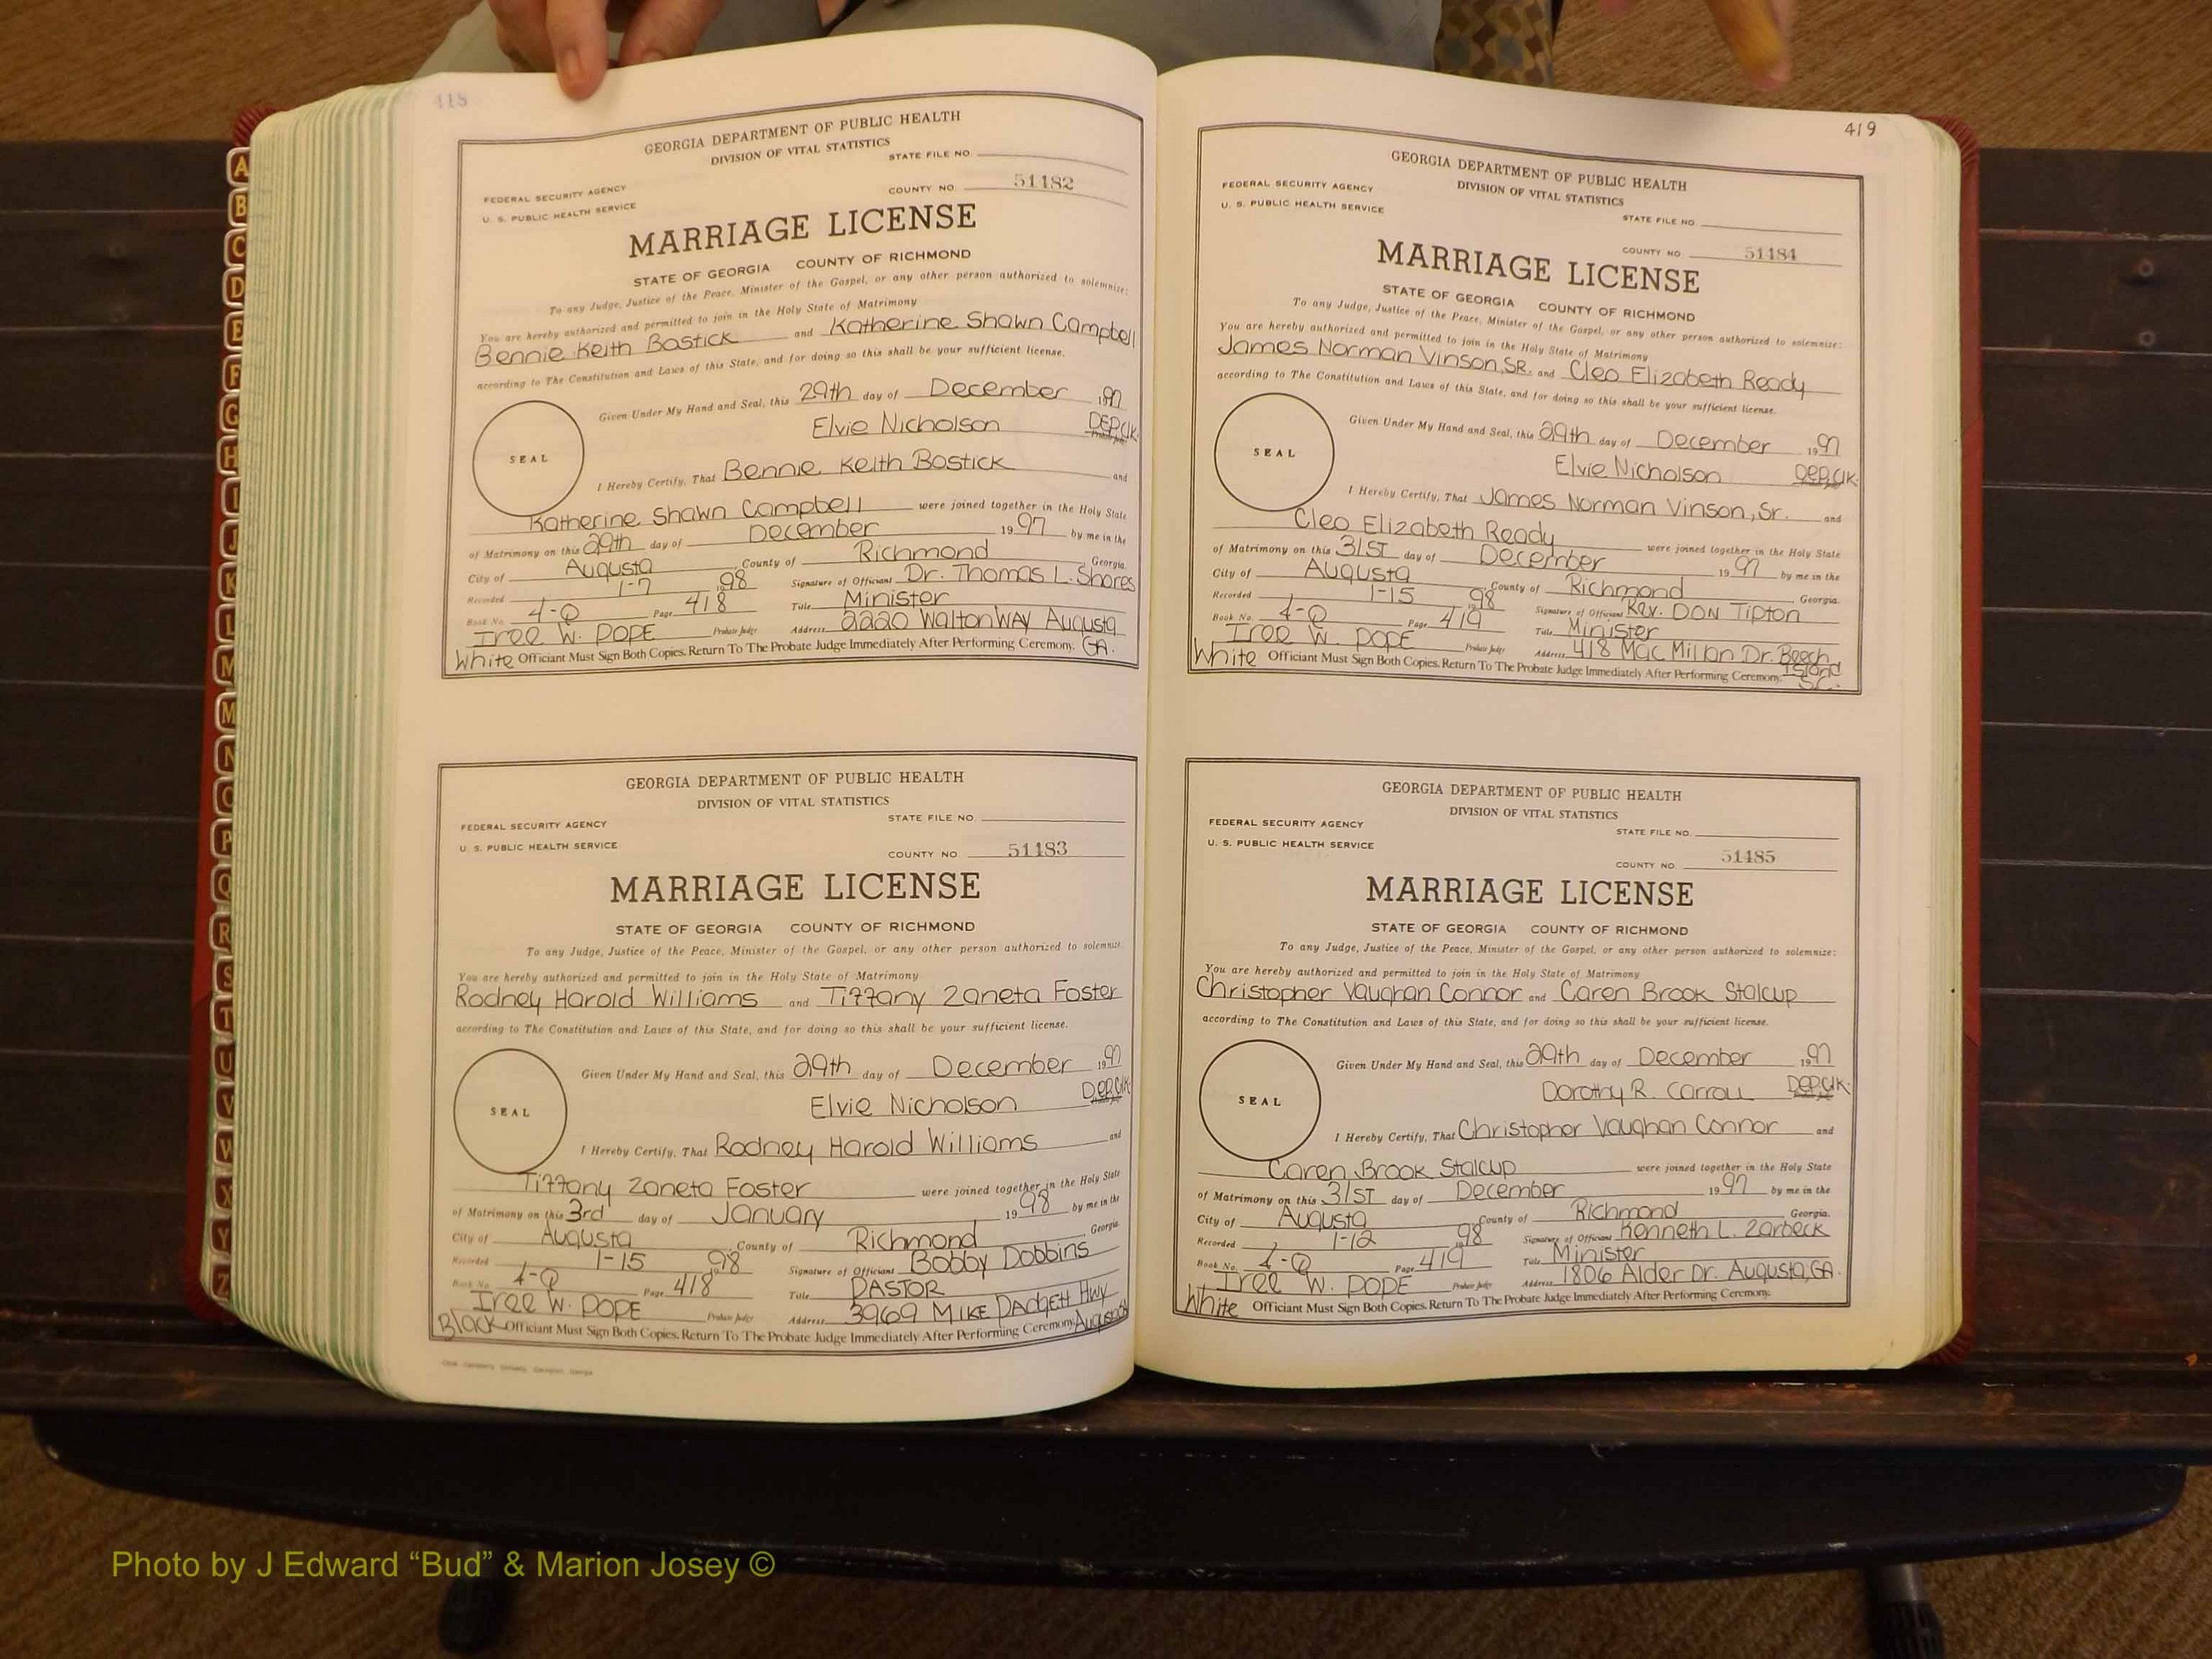 418
GEORGIA DEPARTMENT OF PUBLIC HEALTH
DIVISION OF VITAL STATISTICS
STATE FILE NO.
FEDERAL SECURITY AGENCY
U. S. PUBLIC HEALTH SERVICE
COUNTY NO 51182
MARRIAGE LICENSE
STATE OF GEORGIA COUNTY OF RICHMOND
To any Judge, Justice of the Peace, Minister of the Gospel, or any other person authorized to solemnize:
You are hereby authorized and permitted to join in the Holy State of Matrimony
Bennie Keith Bostick and Katherine Shawn Campbell
according to The Constitution and Laws of this State, and for doing so this shall be your sufficient license.
Given Under My Hand and Seal, this 29th day of December 1997
Elvie Nicholson DEP.Clk.
SEAL
I Hereby Certify, That Bennie Keith Bostick and
Katherine Shawn Campbell were joined together in the Holy State
of Matrimony on this 29th day of December 1997 by me in the
City of Augusta County of Richmond Georgia.
Recorded 1-7 1998 Signature of Officiant Dr. Thomas L. Shores
Book No. 4-Q Page 418 Title Minister
Iree W. Pope Probate Judge Address 2220 Walton Way Augusta
White Officiant Must Sign Both Copies. Return To The Probate Judge Immediately After Performing Ceremony. GA.
GEORGIA DEPARTMENT OF PUBLIC HEALTH
DIVISION OF VITAL STATISTICS
STATE FILE NO.
FEDERAL SECURITY AGENCY
U. S. PUBLIC HEALTH SERVICE
COUNTY NO 51183
MARRIAGE LICENSE
STATE OF GEORGIA COUNTY OF RICHMOND
To any Judge, Justice of the Peace, Minister of the Gospel, or any other person authorized to solemnize:
You are hereby authorized and permitted to join in the Holy State of Matrimony
Rodney Harold Williams and Tiffany Zaneta Foster
according to The Constitution and Laws of this State, and for doing so this shall be your sufficient license.
Given Under My Hand and Seal, this 29th day of December 1997
Elvie Nicholson Dep.Clk.
SEAL
I Hereby Certify, That Rodney Harold Williams and
Tiffany Zaneta Foster were joined together in the Holy State
of Matrimony on this 3rd day of January 1998 by me in the
City of Augusta County of Richmond Georgia.
Recorded 1-15 1998 Signature of Officiant Bobby Dobbins
Book No. 4-Q Page 418 Title PASTOR
Iree W. Pope Probate Judge Address 3969 MIKE PADGETT HWY
Black Officiant Must Sign Both Copies. Return To The Probate Judge Immediately After Performing Ceremony. Augusta GA
419
GEORGIA DEPARTMENT OF PUBLIC HEALTH
DIVISION OF VITAL STATISTICS
FEDERAL SECURITY AGENCY
U. S. PUBLIC HEALTH SERVICE
STATE FILE NO
COUNTY NO 51184
MARRIAGE LICENSE
STATE OF GEORGIA COUNTY OF RICHMOND
To any Judge, Justice of the Peace, Minister of the Gospel, or any other person authorized to solemnize:
You are hereby authorized and permitted to join in the Holy State of Matrimony
James Norman Vinson, SR. and Cleo Elizabeth Ready
according to The Constitution and Laws of this State, and for doing so this shall be your sufficient license.
Given Under My Hand and Seal, this 29th day of December 1997
Elvie Nicholson Dep.Clk.
SEAL
I Hereby Certify, That James Norman Vinson, Sr. and
Cleo Elizabeth Ready were joined together in the Holy State
of Matrimony on this 31ST day of December 1997 by me in the
City of Augusta County of Richmond Georgia.
Recorded 1-15 1998 Signature of Officiant Rev. DON Tipton
Book No. 4-Q Page 419 Title Minister
Iree W. Pope Probate Judge Address 418 Mac Millan Dr. Beech Island S.C.
White Officiant Must Sign Both Copies. Return To The Probate Judge Immediately After Performing Ceremony.
GEORGIA DEPARTMENT OF PUBLIC HEALTH
DIVISION OF VITAL STATISTICS
FEDERAL SECURITY AGENCY
STATE FILE NO.
U. S. PUBLIC HEALTH SERVICE
COUNTY NO. 51185
MARRIAGE LICENSE
STATE OF GEORGIA COUNTY OF RICHMOND
To any Judge, Justice of the Peace, Minister of the Gospel, or any other person authorized to solemnize:
You are hereby authorized and permitted to join in the Holy State of Matrimony
Christopher Vaughan Connor and Caren Brook Stalcup
according to The Constitution and Laws of this State, and for doing so this shall be your sufficient license.
Given Under My Hand and Seal, this 29th day of December 1997
Dorothy R. Carroll Dep.Clk.
SEAL
I Hereby Certify, That Christopher Vaughan Connor and
Caren Brook Stalcup were joined together in the Holy State
of Matrimony on this 31ST day of December 1997 by me in the
City of Augusta County of Richmond Georgia.
Recorded 1-12 1998 Signature of Officiant Kenneth L. Zarbeck
Book No. 4-Q Page 419 Title Minister
Iree W. Pope Probate Judge Address 1806 Alder Dr. Augusta, GA.
White Officiant Must Sign Both Copies. Return To The Probate Judge Immediately After Performing Ceremony.
A
B
C
D
E
F
G
H
I
J
K
L
M
M
N
O
P
Q
R
S
T
U
V
W
X
Y
Z
Photo by J Edward “Bud” & Marion Josey ©